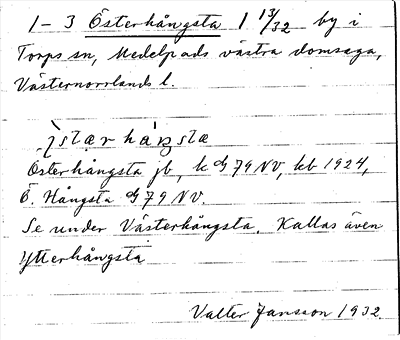 1 - 3 Österhångsta 1 13/32 by i
Torps sn, Medelpads västra domsaga,
Västernorrlands l.
Österhångsta jb, k G 79 NV, kb 1924,
Ö. Hångsta G 79 NV.
Se under Västerhångsta. Kallas även
Ytterhångsta
Valter Jansson 1932.